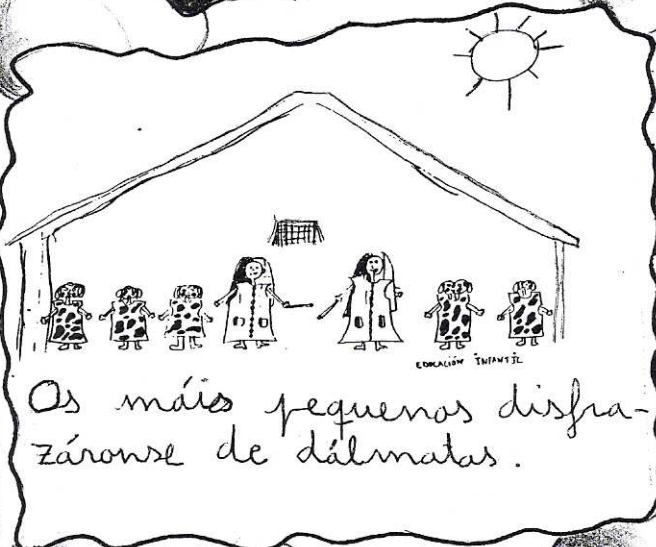 EDUCACIÓN INFANTIL
Os máis pequenos disfra-
záronse de dálmatas.